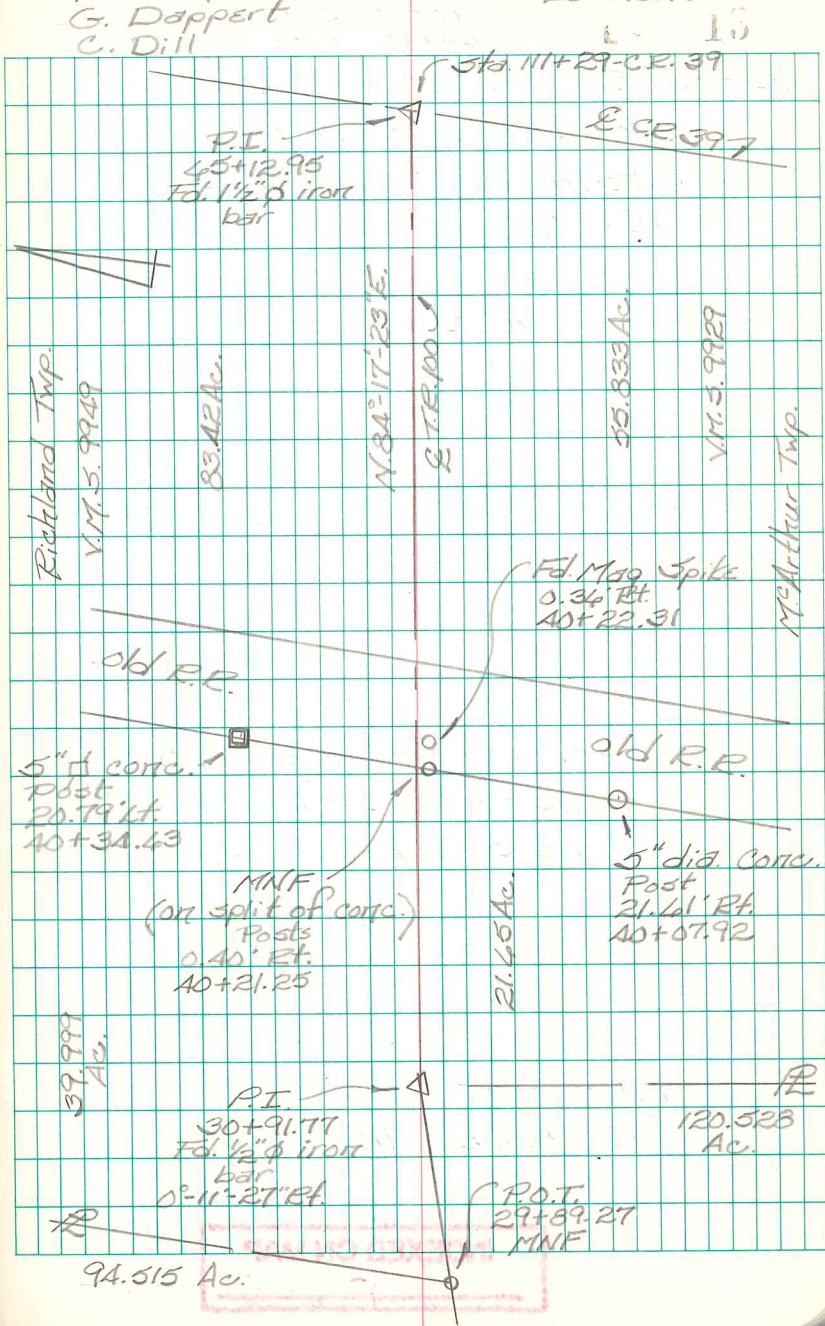 G. Dappert
C. Dill
13
Sta. 111+29-C.R. 39
P.I.
65+12.95
Fd. 1½"ϕ iron
bar
℄ C.R. 39
N.84°-17'-23"E.
℄ T.R. 100
Richland Twp.
V.M.S. 9949
83.42 Ac.
55.833 Ac.
V.M.S. 9929
McArthur Twp.
Fd. Mag Spike
0.36' Rt.
40+22.31
old R.R.
old R.R.
5"□ conc.
Post
20.79' Lt.
40+34.63
5" dia. conc.
Post
21.61' Rt.
40+07.92
MNF
(on split of conc.)
Posts
0.40' Rt.
40+21.25
21.65 Ac.
39.999
Ac.
P.I.
30+91.77
Fd. ½"ϕ iron
bar
0°-11'-27" Rt.
℄
120.528
Ac.
P.O.T.
29+89.27
MNF
℄
94.515 Ac.